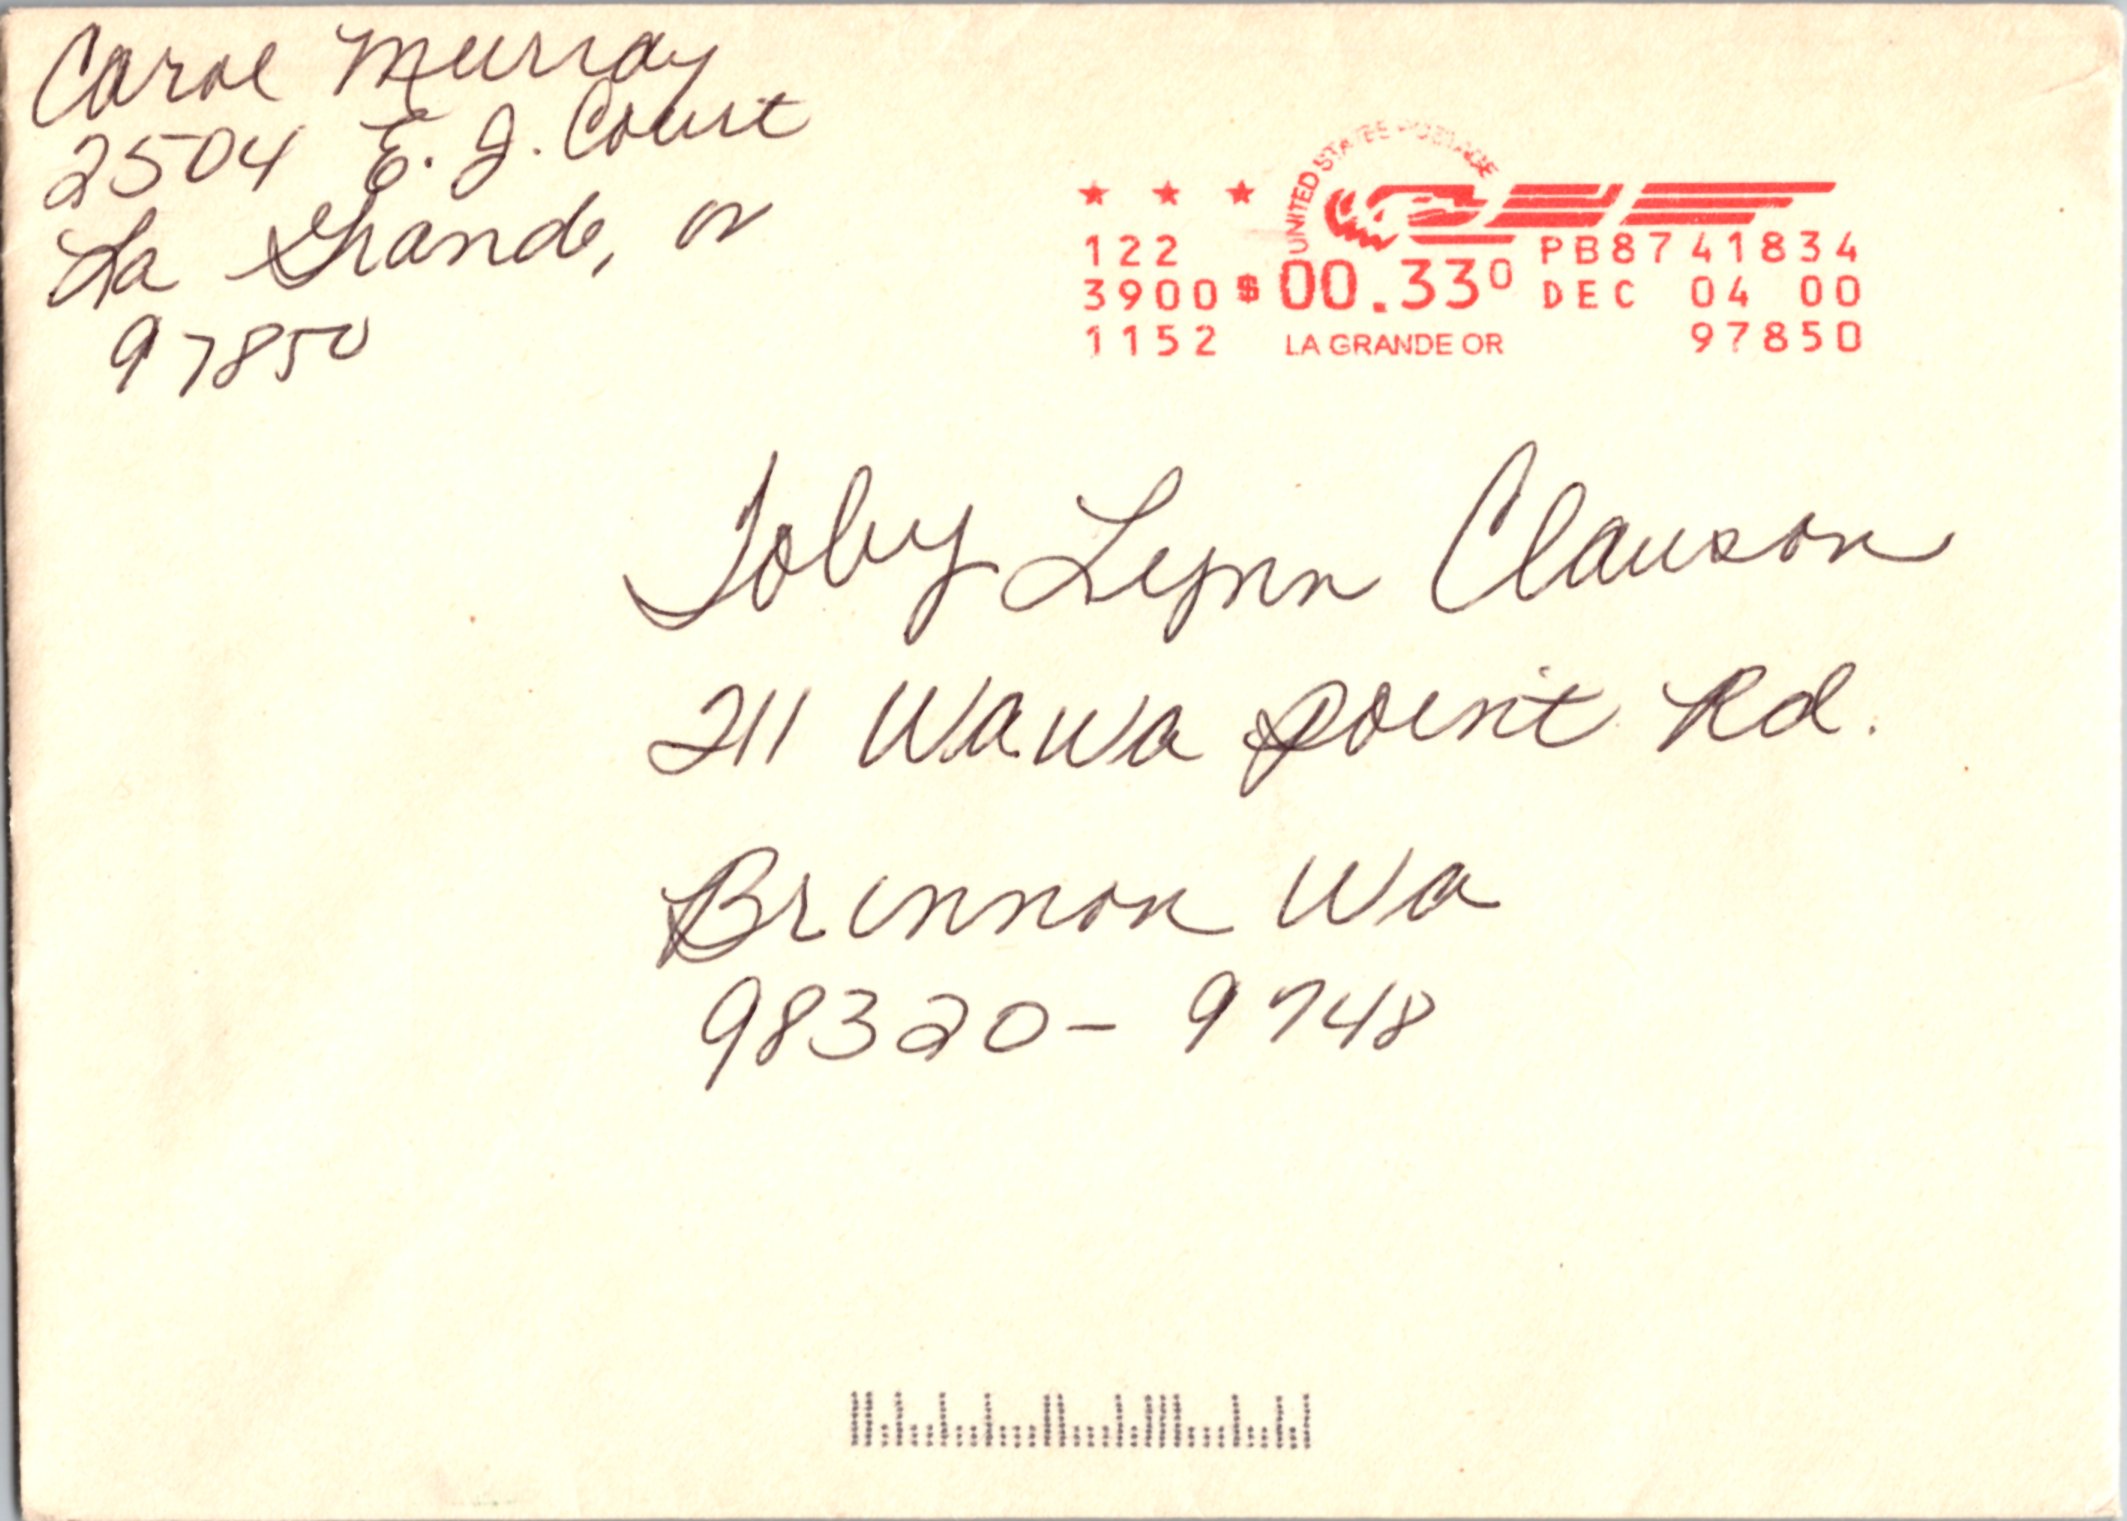 Carol Murray
2504 E. J. Court
La Grande, or
97850
UNITED STATES POSTAGE
122 PB8741834
3900 $00.330 DEC 04 00
1152 LA GRANDE OR 97850
Toby Lynn Clauson
211 WaWa Point Rd.
Brinnon Wa
98320-9748